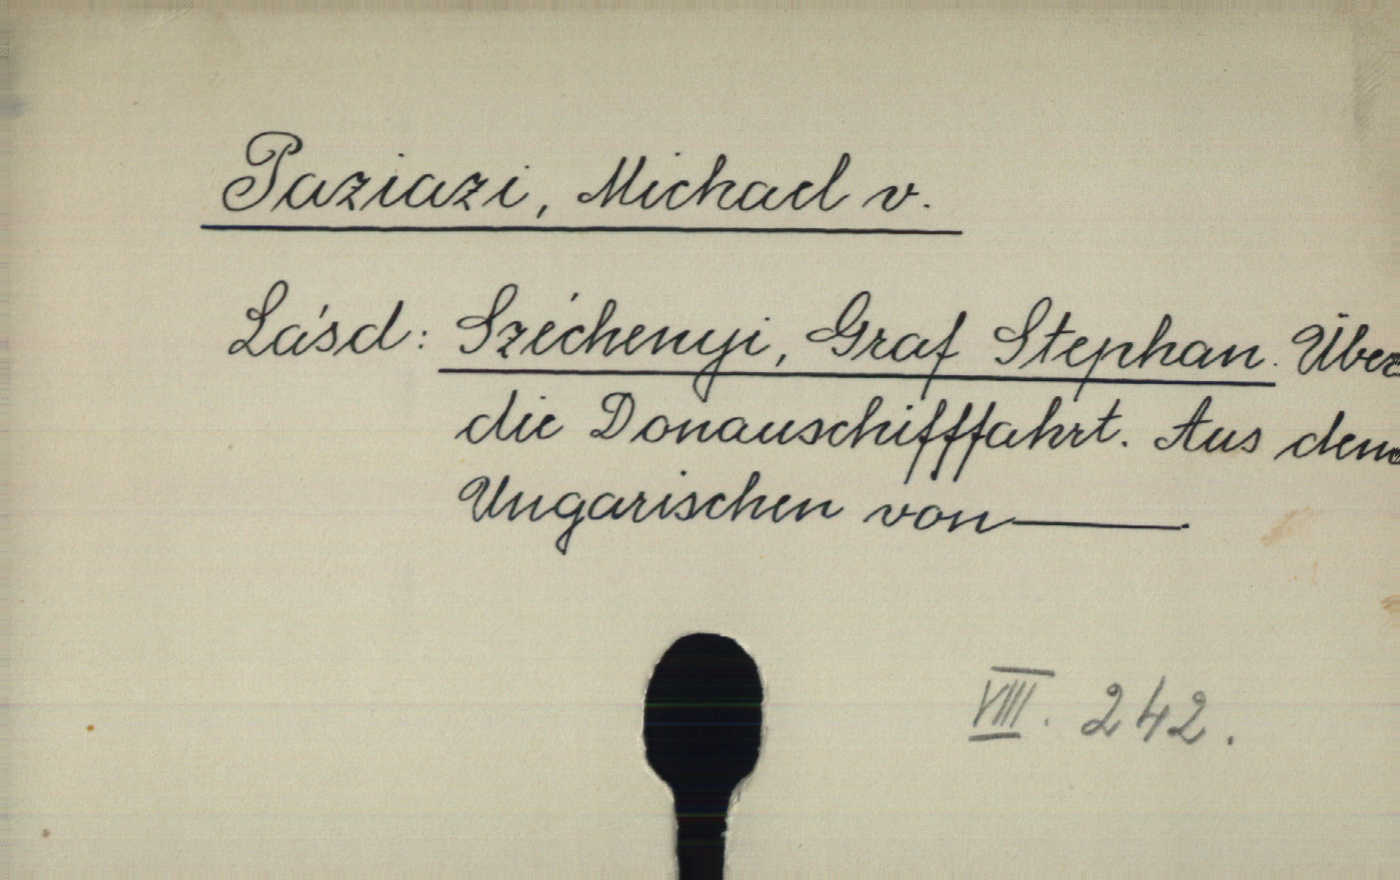 Paziazi, Michael v.
Lásd: Széchenyi, Graf Stephan. Über
die Donauschifffahrt. Aus dem
Ungarischen von ———.
VIII. 242.